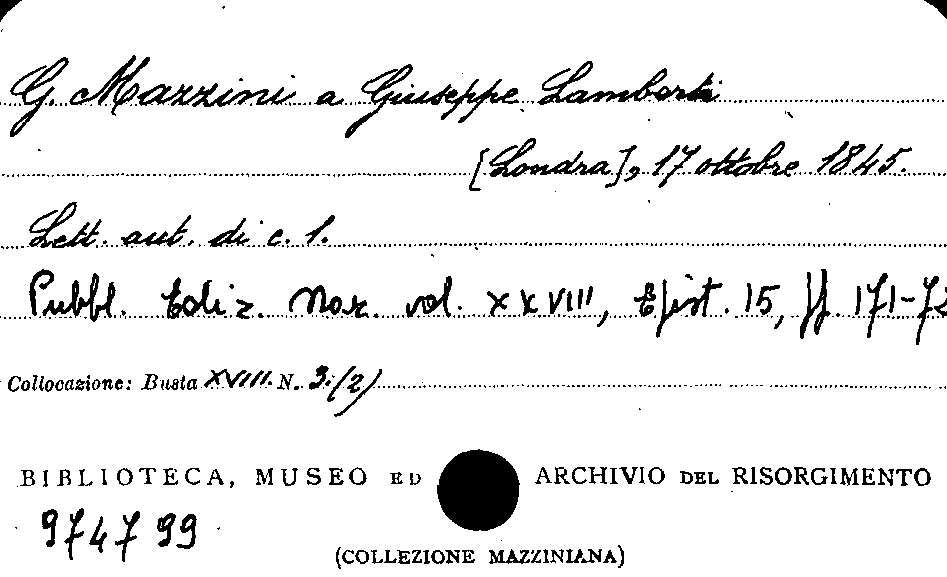 G. Mazzini a Giuseppe Lamberti
[Londra], 17 ottobre 1845.
Lett. aut. di c. 1.
Pubbl. Ediz. Naz. vol. XXVIII, Epist. 15, pp. 171-72
Collocazione: Busta XVIII. N. 3.(2)
BIBLIOTECA, MUSEO ED ARCHIVIO DEL RISORGIMENTO
974799
(COLLEZIONE MAZZINIANA)